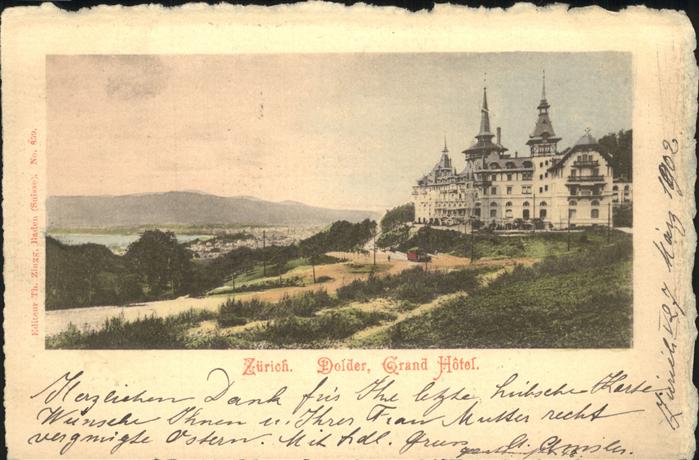 Editeur Th. Zingg, Baden (Suisse), No. 859.
Zürich. Dolder, Grand Hôtel.
Herzlichen Dank für's Ihr letzte, hübsche Karte
Wünsche Ihnen u. Ihrer Frau Mutter recht
vergnügte Ostern. Mit frdl. Gruss
Zürich V 27 März 1902